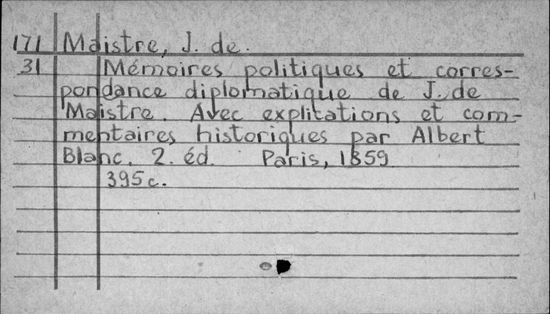 171 Maistre, J. de.
31 Mémoires politiques et corres-
pondance diplomatique de J. de
Maistre. Avec explitations et com-
mentaires historiques par Albert
Blanc. 2. éd. Paris, 1859
395c.